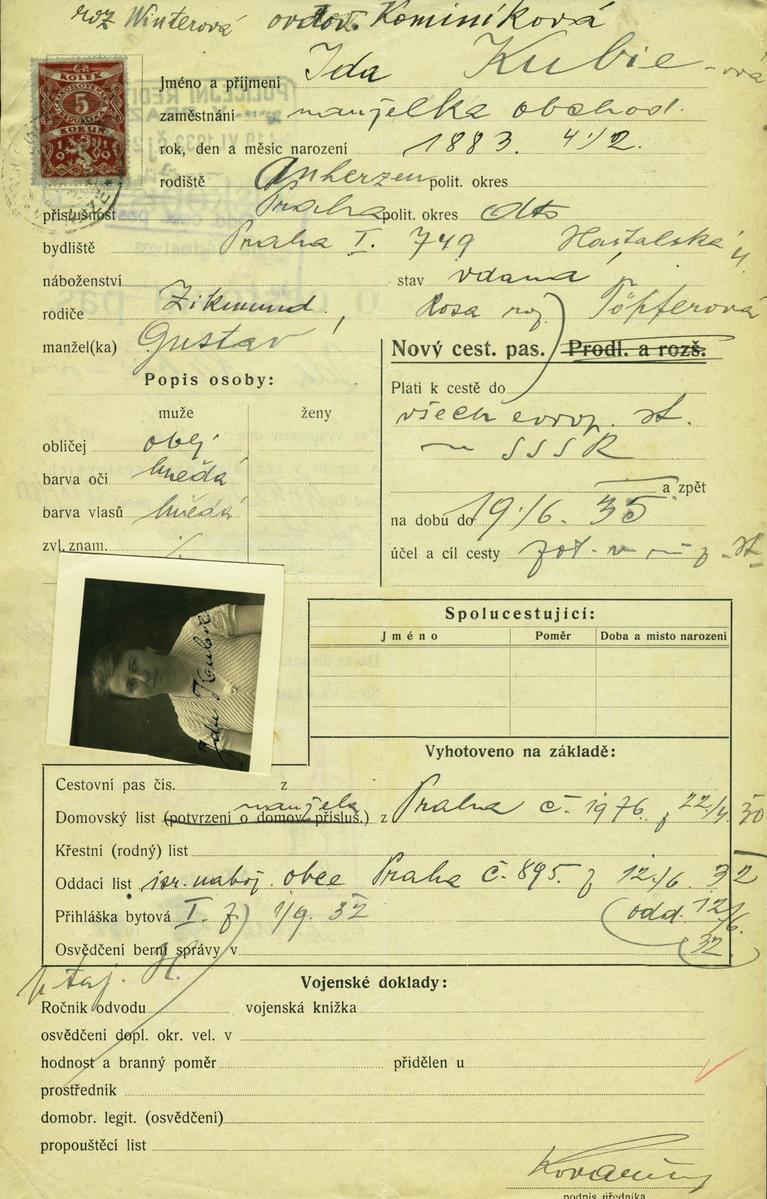 roz Winterová ovdov. Kominíková
KOLEK
5
KORUN
Jméno a příjmení Ida Kubie-ová
zaměstnání manželka obchod.
rok, den a měsíc narození 1883. 4./2.
rodiště polit. okres
příslušnost Praha polit. okres dto
bydliště Praha I. 749 Haštalská 4.
náboženství stav vdaná
rodiče Zikmund, Rosa roz. Töpferová
manžel(ka) Gustav
Nový cest. pas. Prodl. a rozš.
Popis osoby:
Platí k cestě do
muže ženy
všech evrop. st.
obličej obl.
SSSR
barva očí hnědá
a zpět
barva vlasů hnědá
na dobu do 19./6. 35
zvl. znam.
účel a cíl cesty
Ida Kubie
Spolucestující:
Jméno Poměr Doba a místo narození
Vyhotoveno na základě:
Cestovní pas čís. z
manžela
Domovský list (potvrzení o domov. přísluš.) z Praha č. 1976 z 22./4. 30
Křestní (rodný) list
Oddací list isr. nábož. obce Praha č. 895. z 12./6. 32
Přihláška bytová I. z 1/9. 32 (odd. 12/6. 32)
Osvědčení berní správy v
Vojenské doklady:
Ročník odvodu vojenská knížka
osvědčení dopl. okr. vel. v
hodnost a branný poměr přidělen u
prostředník
domobr. legit. (osvědčení)
propouštěcí list
podpis úředníka